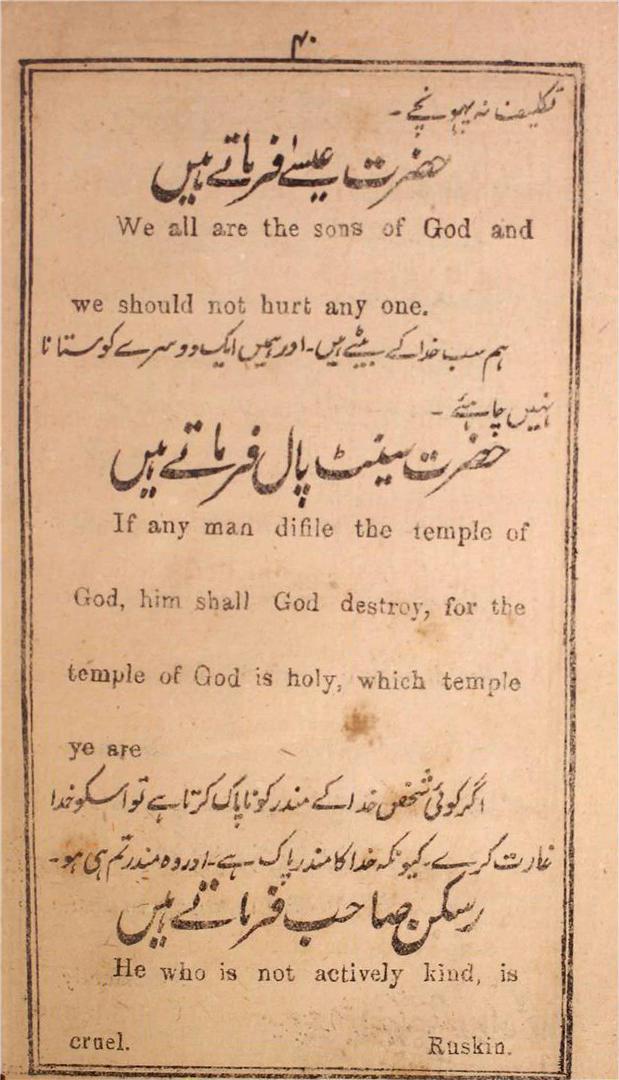 ۴۰
تکلیف نہ پہونچے۔
حضرت عیسےٰ فرماتے ہیں
We all are the sons of God and
we should not hurt any one.
ہم سب خدا کے بیٹے ہیں۔ اور ہمیں ایک دوسرے کو ستانا
نہیں چاہئے۔
حضرت سینٹ پال فرماتے ہیں
If any man difile the temple of
God, him shall God destroy, for the
temple of God is holy, which temple
ye are
اگر کوئی شخص خدا کے مندر کو ناپاک کرتا ہے تو اسکو خدا
غارت کرے۔ کیونکہ خدا کا مندر پاک ہے۔ اور وہ مندر تم ہی ہو۔
رسکن صاحب فرماتے ہیں
He who is not actively kind, is
cruel. Ruskin.